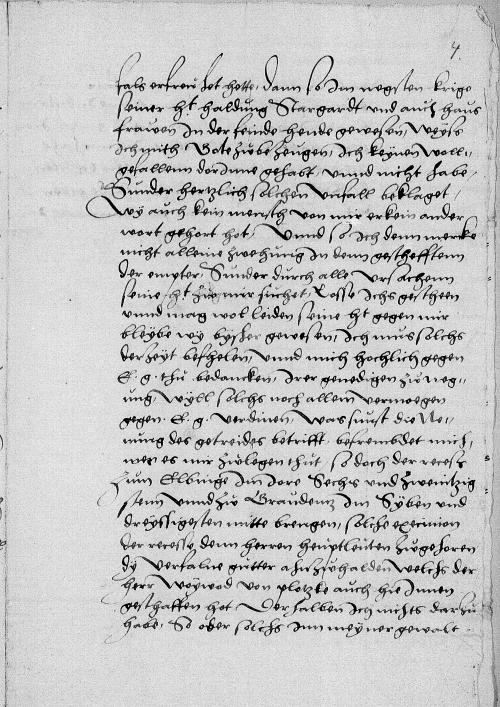 4.
fals erfreuhet hette, dann so im negsten krige
seiner h<sup>t</sup> haldung Stargardt und auch haus
frauen in der feinde hende gewesen, weyss
ich mith Gote zubezeugen, ich keynen woll-
gefallenn dorinne gehabt, unnd nicht habe
Sunder hertzlich solchen unfall beklaget,
wy auch kein mensch von mir er kein ander
wort gehort hot, Unnd so ich denn mercke
nicht alleine zwehunge in denn geschefftenn
der empter, Sunder durch alle ursachenn
seine h<sup>t</sup> zu mir suchet, Losse ichs gescheen
unnd mag wol leiden seine h<sup>t</sup> gegen mir
bleybe wy bysher gewesen, Ich mus solchs
der zeyt befhelen, unnd mich hochlich gegen
E. g. thu bedancken, irer genedigen zuneg-
ung, wyll solchs noch allem vermoegen
gegen E. g. verdinen, Was sunst die Ne-
mung des getreides betrifft befrembdet mich,
wer es mir zulegen thut, so doch der recess
zum Elbinge im Jore Sechs und zwentzig
stenn unnd zu Graudentz im Syben und
dreyssigesten mitte brengen, solche execution
der recess denn herren heuptleuten zugehoren
dy verfalne gutter ahnzuhalden welchs der
herr Woywod von plotzke auch hie innen
geschaffen hot Derhalben ich nichts dar zu
habe, So ober solchs inn meyner gewalt